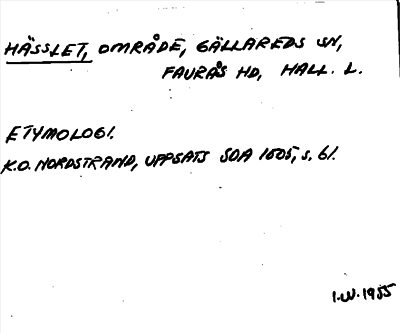 HÄSSLET, OMRÅDE, GÄLLAREDS SN,
FAURÅS HD, HALL. L.
ETYMOLOGI.
K.O. NORDSTRAND, UPPSATS SOA 1605, s. 61.
1955